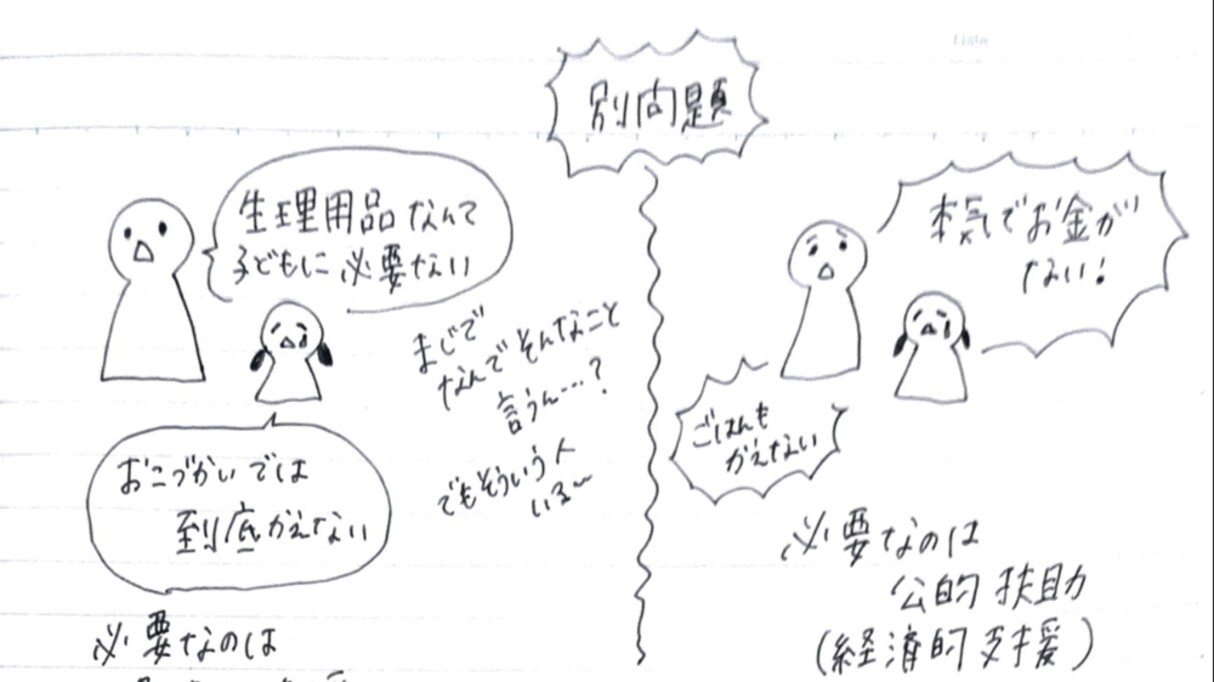 別問題
生理用品なんて
子どもに必要ない
おこづかいでは
到底かえない
まじで
なんでそんなこと
言うん…?
でもそういう人
いる~
必要なのは
本気でお金が
ない!
ごはんも
かえない
必要なのは
公的扶助
(経済的支援)